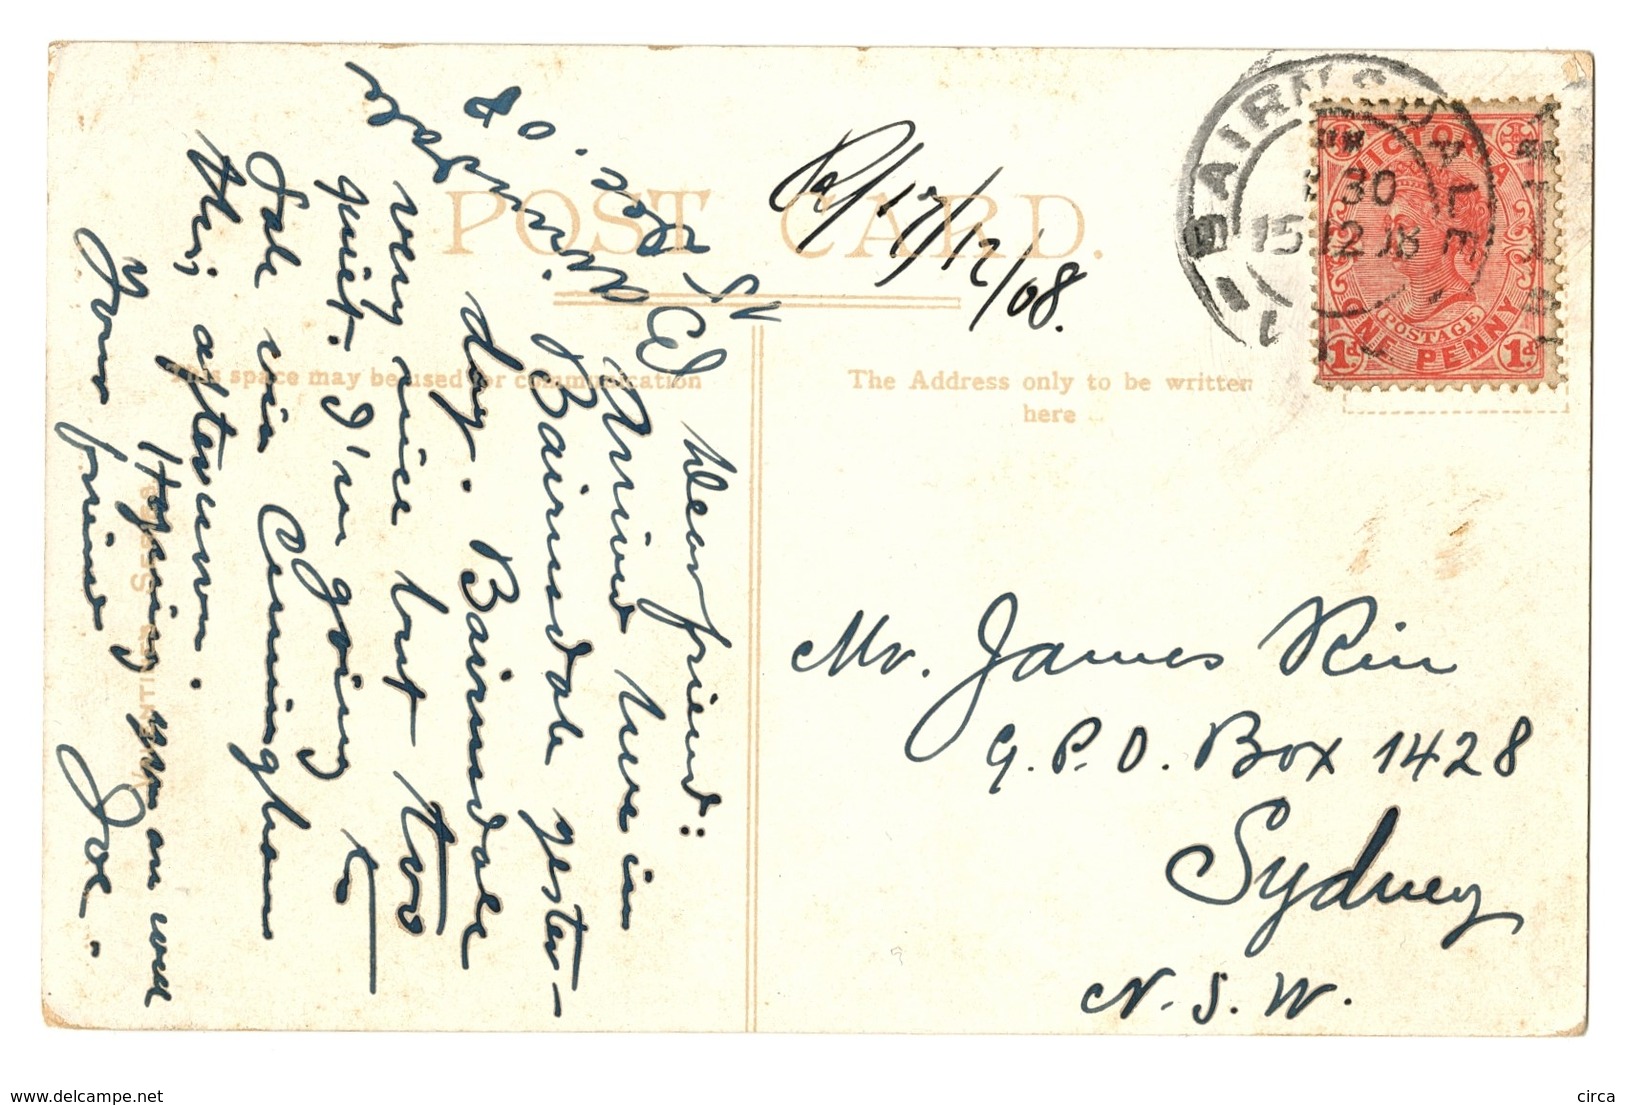 POST CARD.
This space may be used for communication
The Address only to be written
here
Bairnsdale
15 Dec. 08
Dear friend:
Arrived here in
Bairnsdale yester-
day. Bairnsdale
very nice but too
quiet. I'm going to
Sale via Cunningham
this afternoon.
Hoping you are well
Your friend Joe.
Re/17/12/08.
BAIRNSDALE
30
15 12 08
VICTORIA
POSTAGE
ONE PENNY
1d 1d
Mr. James Rin
G.P.O. Box 1428
Sydney
N.S.W.
www.delcampe.net
circa